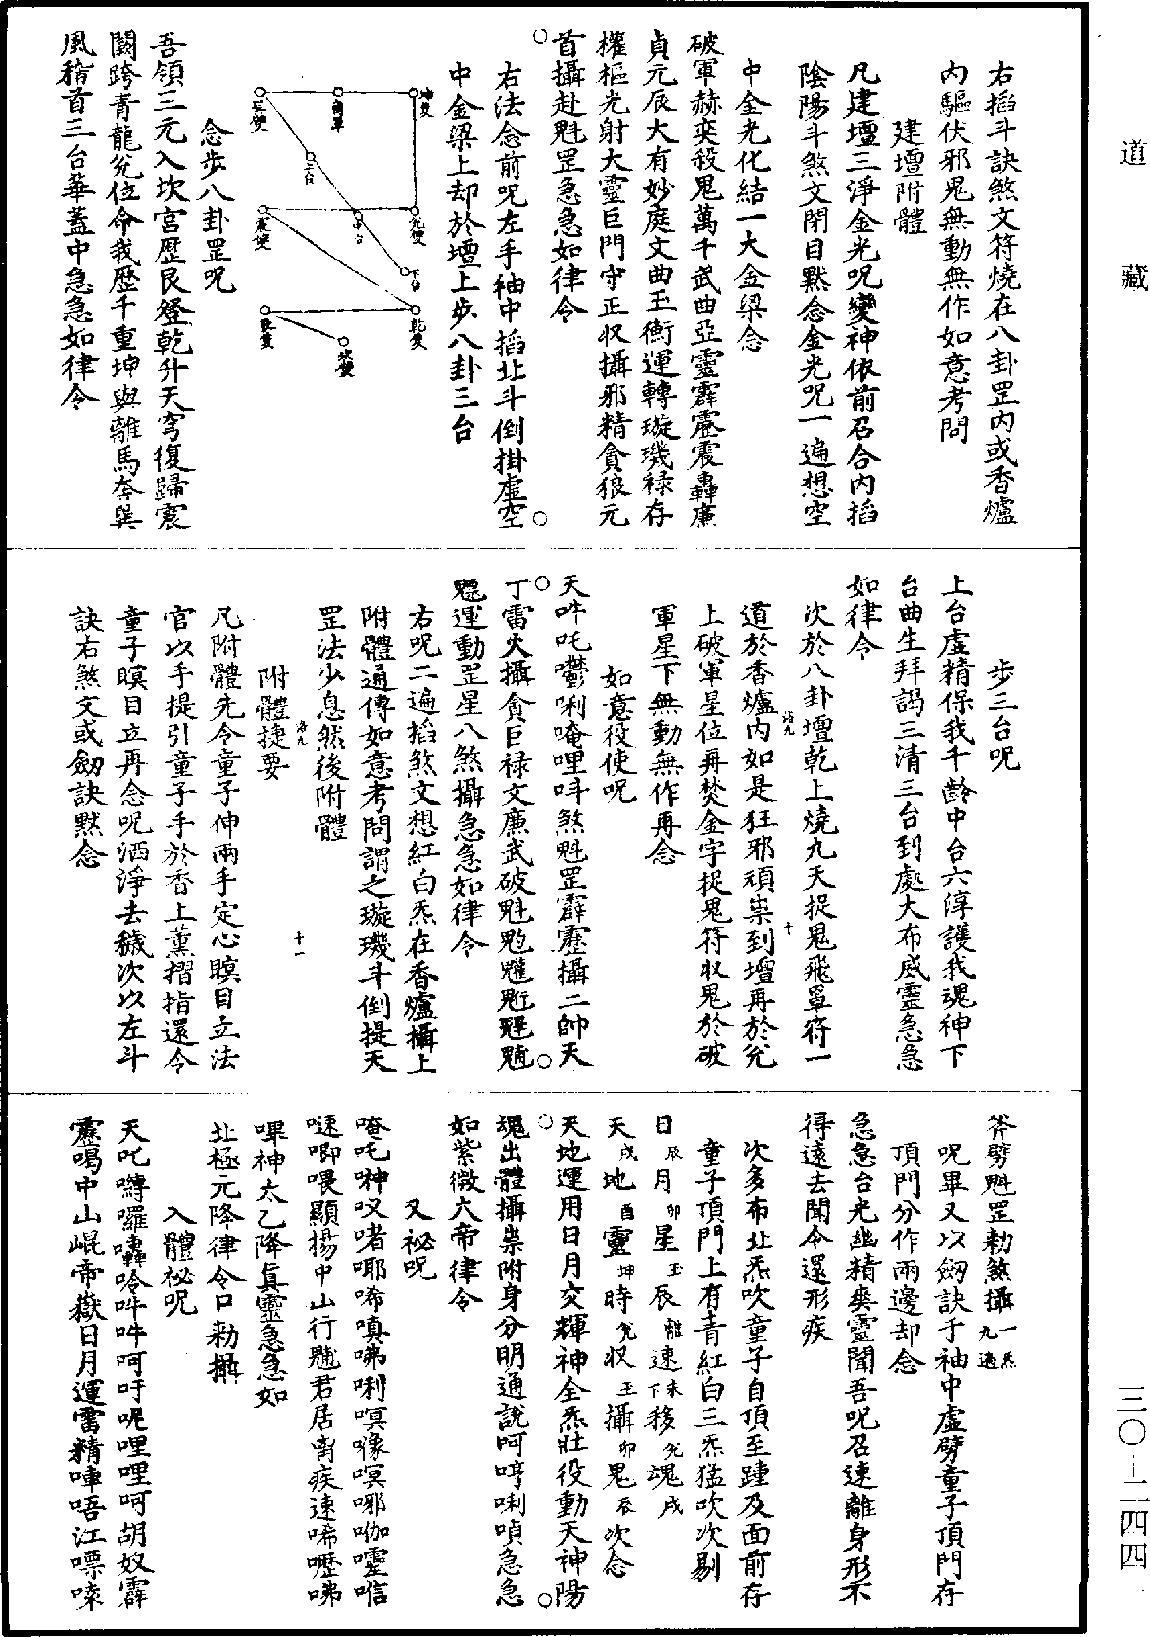 道藏
右搯斗訣煞文符燒在八卦罡内或香爐
内驅伏邪鬼無動無作如意考問
建壇附體
凡建壇三淨金光呪變神依前召合内搯
陰陽斗煞文閉目默念金光呪一遍想空
中金光化結一大金梁念
破軍赫奕殺鬼萬千武曲亞靈霹靂震轟廉
貞元辰大有妙庭文曲玉衡運轉璇璣祿存
權樞光射大靈巨門守正収攝邪精貪狼元
首攝赴魁罡急急如律令
右法念前呪左手袖中搯北斗倒掛虛空
中金梁上却於壇上步八卦三台
坤變
兌變
中台
下台
乾變
坎變
念步八卦罡呪
吾領三元入坎宮歷艮登乾升天穹復歸震
闕跨青龍兌位命我歷千重坤與離馬奔巽
風稽首三台華蓋中急急如律令
步三台呪
上台虛精保我千齡中台六淳護我魂神下
台曲生拜謁三清三台到處大布威靈急急
如律令
次於八卦壇乾上燒九天捉鬼飛罩符一
道於香爐内如是狂邪頑祟到壇再於兌
上破軍星位再焚金字捉鬼符収鬼於破
軍星下無動無作再念
如意役使呪
天吽吒鬱唎唵哩呌煞魁罡霹靂攝二帥天
丁雷火攝貪巨祿文廉武破魁
魒運動罡星八煞攝急急如律令
右呪二遍搯煞文想紅白炁在香爐攝上
附體通傳如意考問謂之璇璣斗倒提天
罡法少息然後附體
十一
附體捷要
凡附體先令童子伸兩手定心瞑目立法
官以手提引童子手於香上薰摺指還令
童子瞑目立再念呪洒淨去穢次以左斗
訣右煞文或劒訣默念
斧劈魁罡勑煞攝一炁九遍
呪畢又以劒訣于袖中虛劈童子頂門存
頂門分作兩邊却念
急急台光幽精爽靈聞吾呪召速離身形不
得遠去聞令還形疾
次多布北炁吹童子自頂至踵及面前存
童子頂門上有青紅白三炁猛吹次剔
日辰月卯星玉辰離速未下移兌魂戌
天戌地酉靈坤時兌収玉攝卯鬼辰次念
天地運用日月交輝神全炁壯役動天神陽
魂出體攝祟附身分明通說呵哼唎唝急急
如紫微六帝律令
又祕呪
唵吒呻㕚啫唎㗭
唎喂顯揚中山行
嗶神太乙降真靈急急如
北極元降律令口勑攝
入體祕呪
天吒囀囉轟唥吽吽呵吁呢哩哩呵胡奴霹
靂喝中山崐帝嶽日月運雷精啤唔江嘌
三〇—二四四